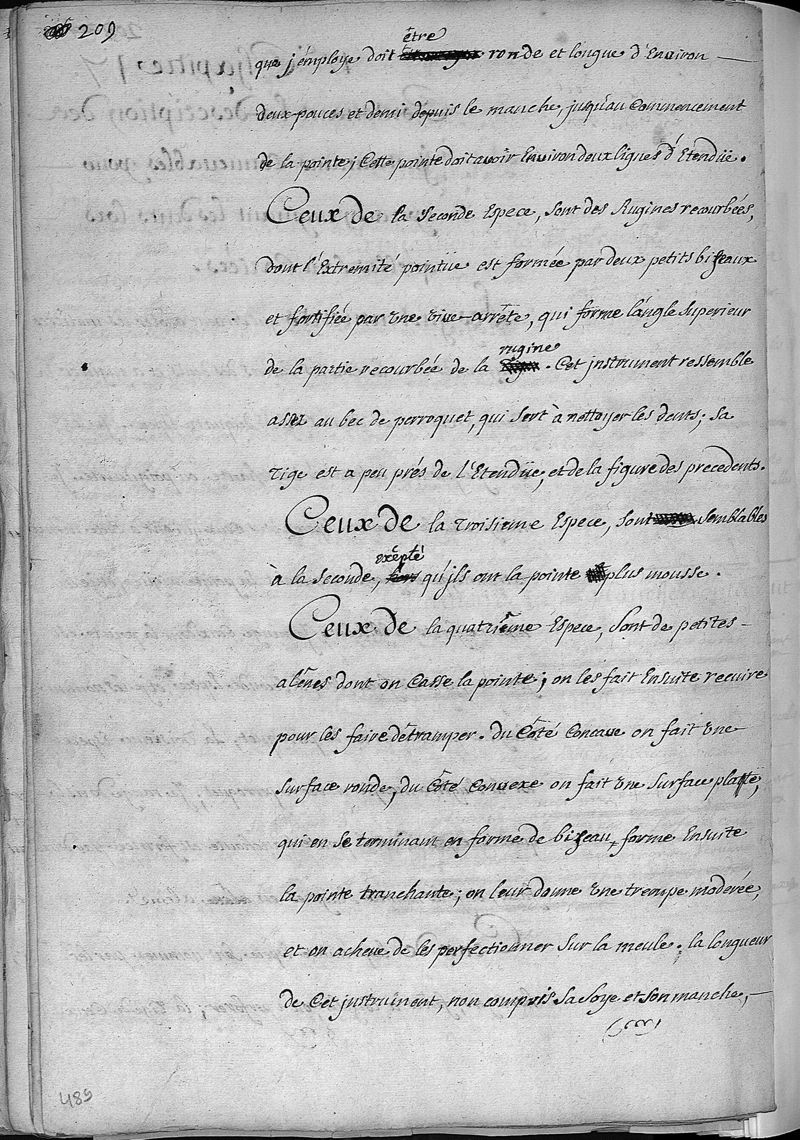 209
que j'employe doit être ronde et longue d'Environ
deux pouces et demi depuis le manche, jusqu'au Commencement
de la pointe; Cette pointe doit avoir Environ deux lignes d'Etendüe.
Ceux de la seconde Espece, sont des Rugines recourbées,
dont l'Extremité pointüe est formée par deux petits bizeaux
et fortifiée par une vive-arrête, qui forme l'angle superieur
de la partie recourbée de la rugine. Cet instrument ressemble
assez au bec de perroquet, qui sert à nettoyer les dents; sa
Tige est a peu prés de l'Etendüe, et de la figure des precedents.
Ceux de la Troisieme Espece, sont semblables
à la seconde, exêpté qu'ils ont la pointe plus mousse.
Ceux de la quatriême Espece, sont de petites
alênes dont on Casse la pointe; on les fait Ensuite recuire
pour les faire dêtramper. du Côté Concave on fait une
surface ronde, du Côté Convexe on fait une surface platte,
qui en se terminant en forme de bizeau, forme Ensuite
la pointe tranchante; on leur donne une trempe moderée,
et on acheve de les perfectionner sur la meule; la longueur
de Cet instrument, non compris sa soye et son manche,
489